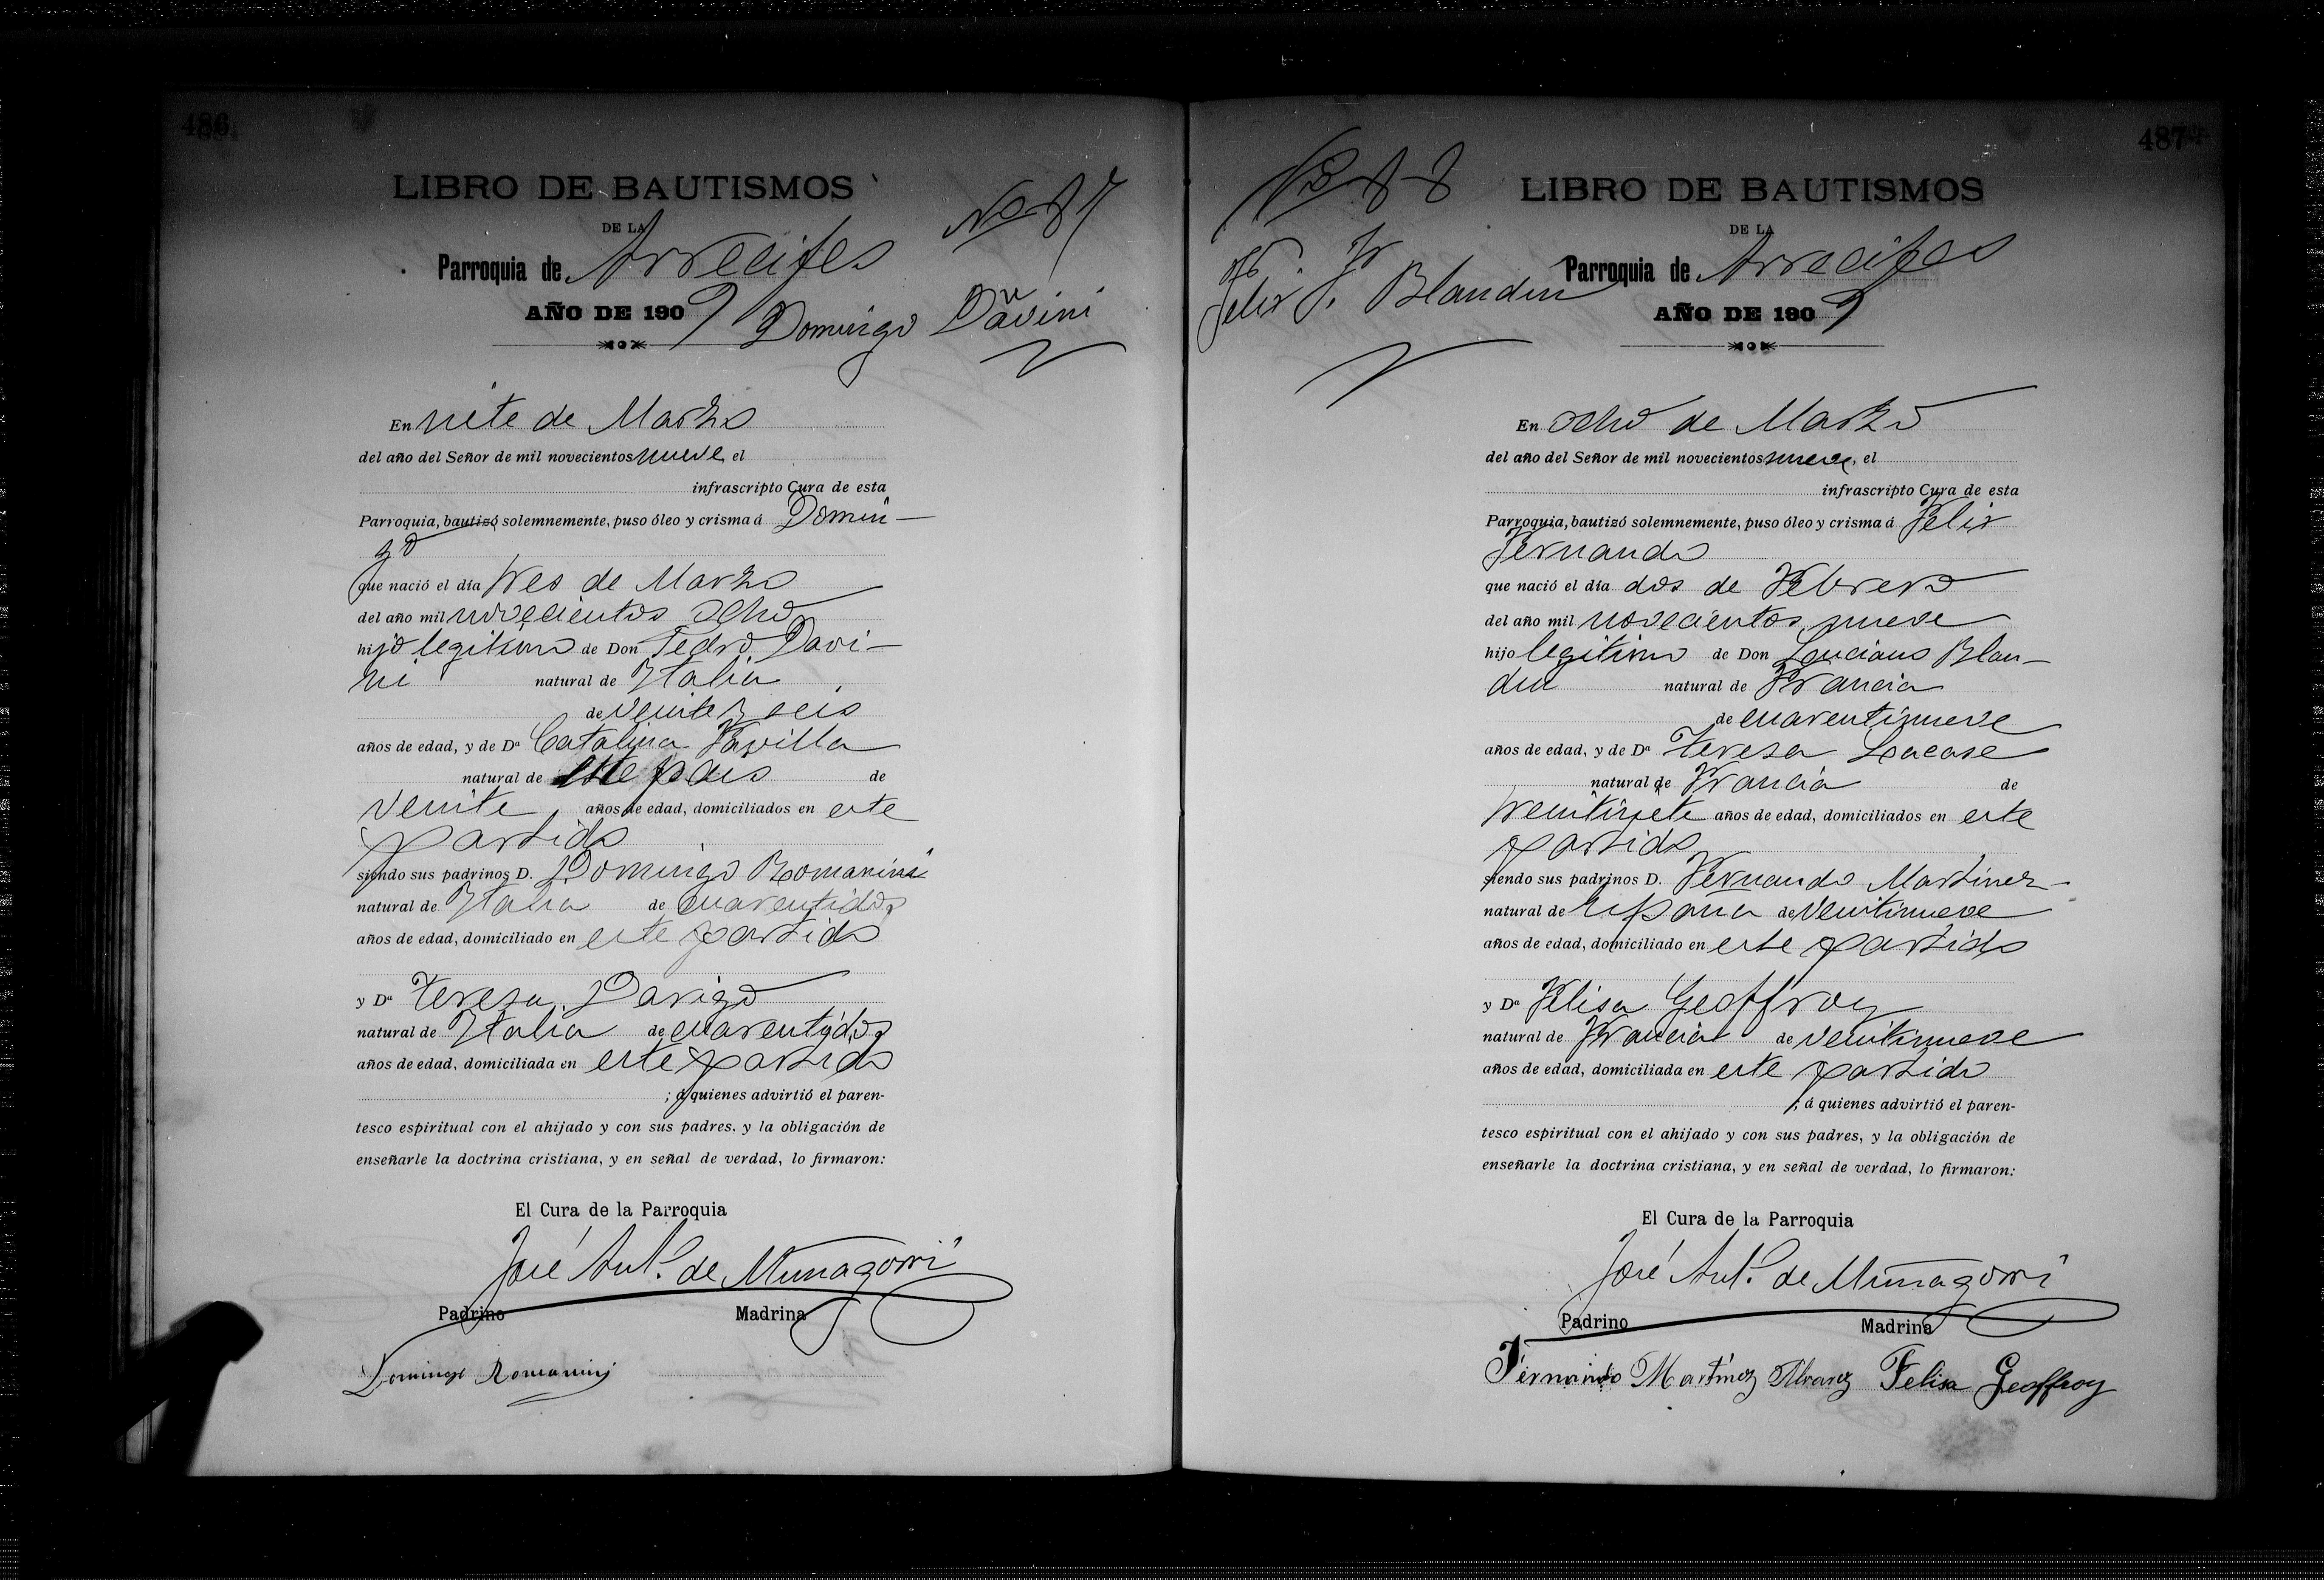 486
LIBRO DE BAUTISMOS
No 87
DE LA
Parroquia de Arrecifes
AÑO DE 1909
Domingo Davini
En siete de Marzo
del año del Señor de mil novecientos nueve, el
infrascripto Cura de esta
Parroquia, bautizó solemnemente, puso óleo y crisma á Domin-
go
que nació el día tres de Marzo
del año mil novecientos ocho
hijo legitimo de Don Pedro Davi-
ni natural de Italia
de veinte y seis
años de edad, y de Dª Catalina Favilla
natural de este pais de
veinte años de edad, domiciliados en este
partido
siendo sus padrinos D. Domingo Romanini
natural de Italia de cuarentidos
años de edad, domiciliado en este partido
y Dª Teresa Darigo
natural de Italia de cuarentidos
años de edad, domiciliada en este partido
; á quienes advirtió el paren-
tesco espiritual con el ahijado y con sus padres, y la obligación de
enseñarle la doctrina cristiana, y en señal de verdad, lo firmaron:
El Cura de la Parroquia
José Antº. de Munagorri
Padrino Madrina
Domingo Romanini
487
No 88
LIBRO DE BAUTISMOS
DE LA
Parroquia de Arrecifes
Felix F. Blandin
AÑO DE 1909
En ocho de Marzo
del año del Señor de mil novecientos nueve, el
infrascripto Cura de esta
Parroquia, bautizó solemnemente, puso óleo y crisma á Felix
Fernando
que nació el día dos de Febrero
del año mil novecientos nueve
hijo legitimo de Don Luciano Blan-
din natural de Francia
de cuarentinueve
años de edad, y de Dª Teresa Lacase
natural de Francia de
treintisiete años de edad, domiciliados en este
partido
siendo sus padrinos D. Fernando Martinez
natural de España de veintinueve
años de edad, domiciliado en este partido
y Dª Felisa Geoffroy
natural de Francia de veintinueve
años de edad, domiciliada en este partido
; á quienes advirtió el paren-
tesco espiritual con el ahijado y con sus padres, y la obligación de
enseñarle la doctrina cristiana, y en señal de verdad, lo firmaron:
El Cura de la Parroquia
José Antº. de Munagorri
Padrino Madrina
Fernando Martínez Alvarez Felisa Geoffroy